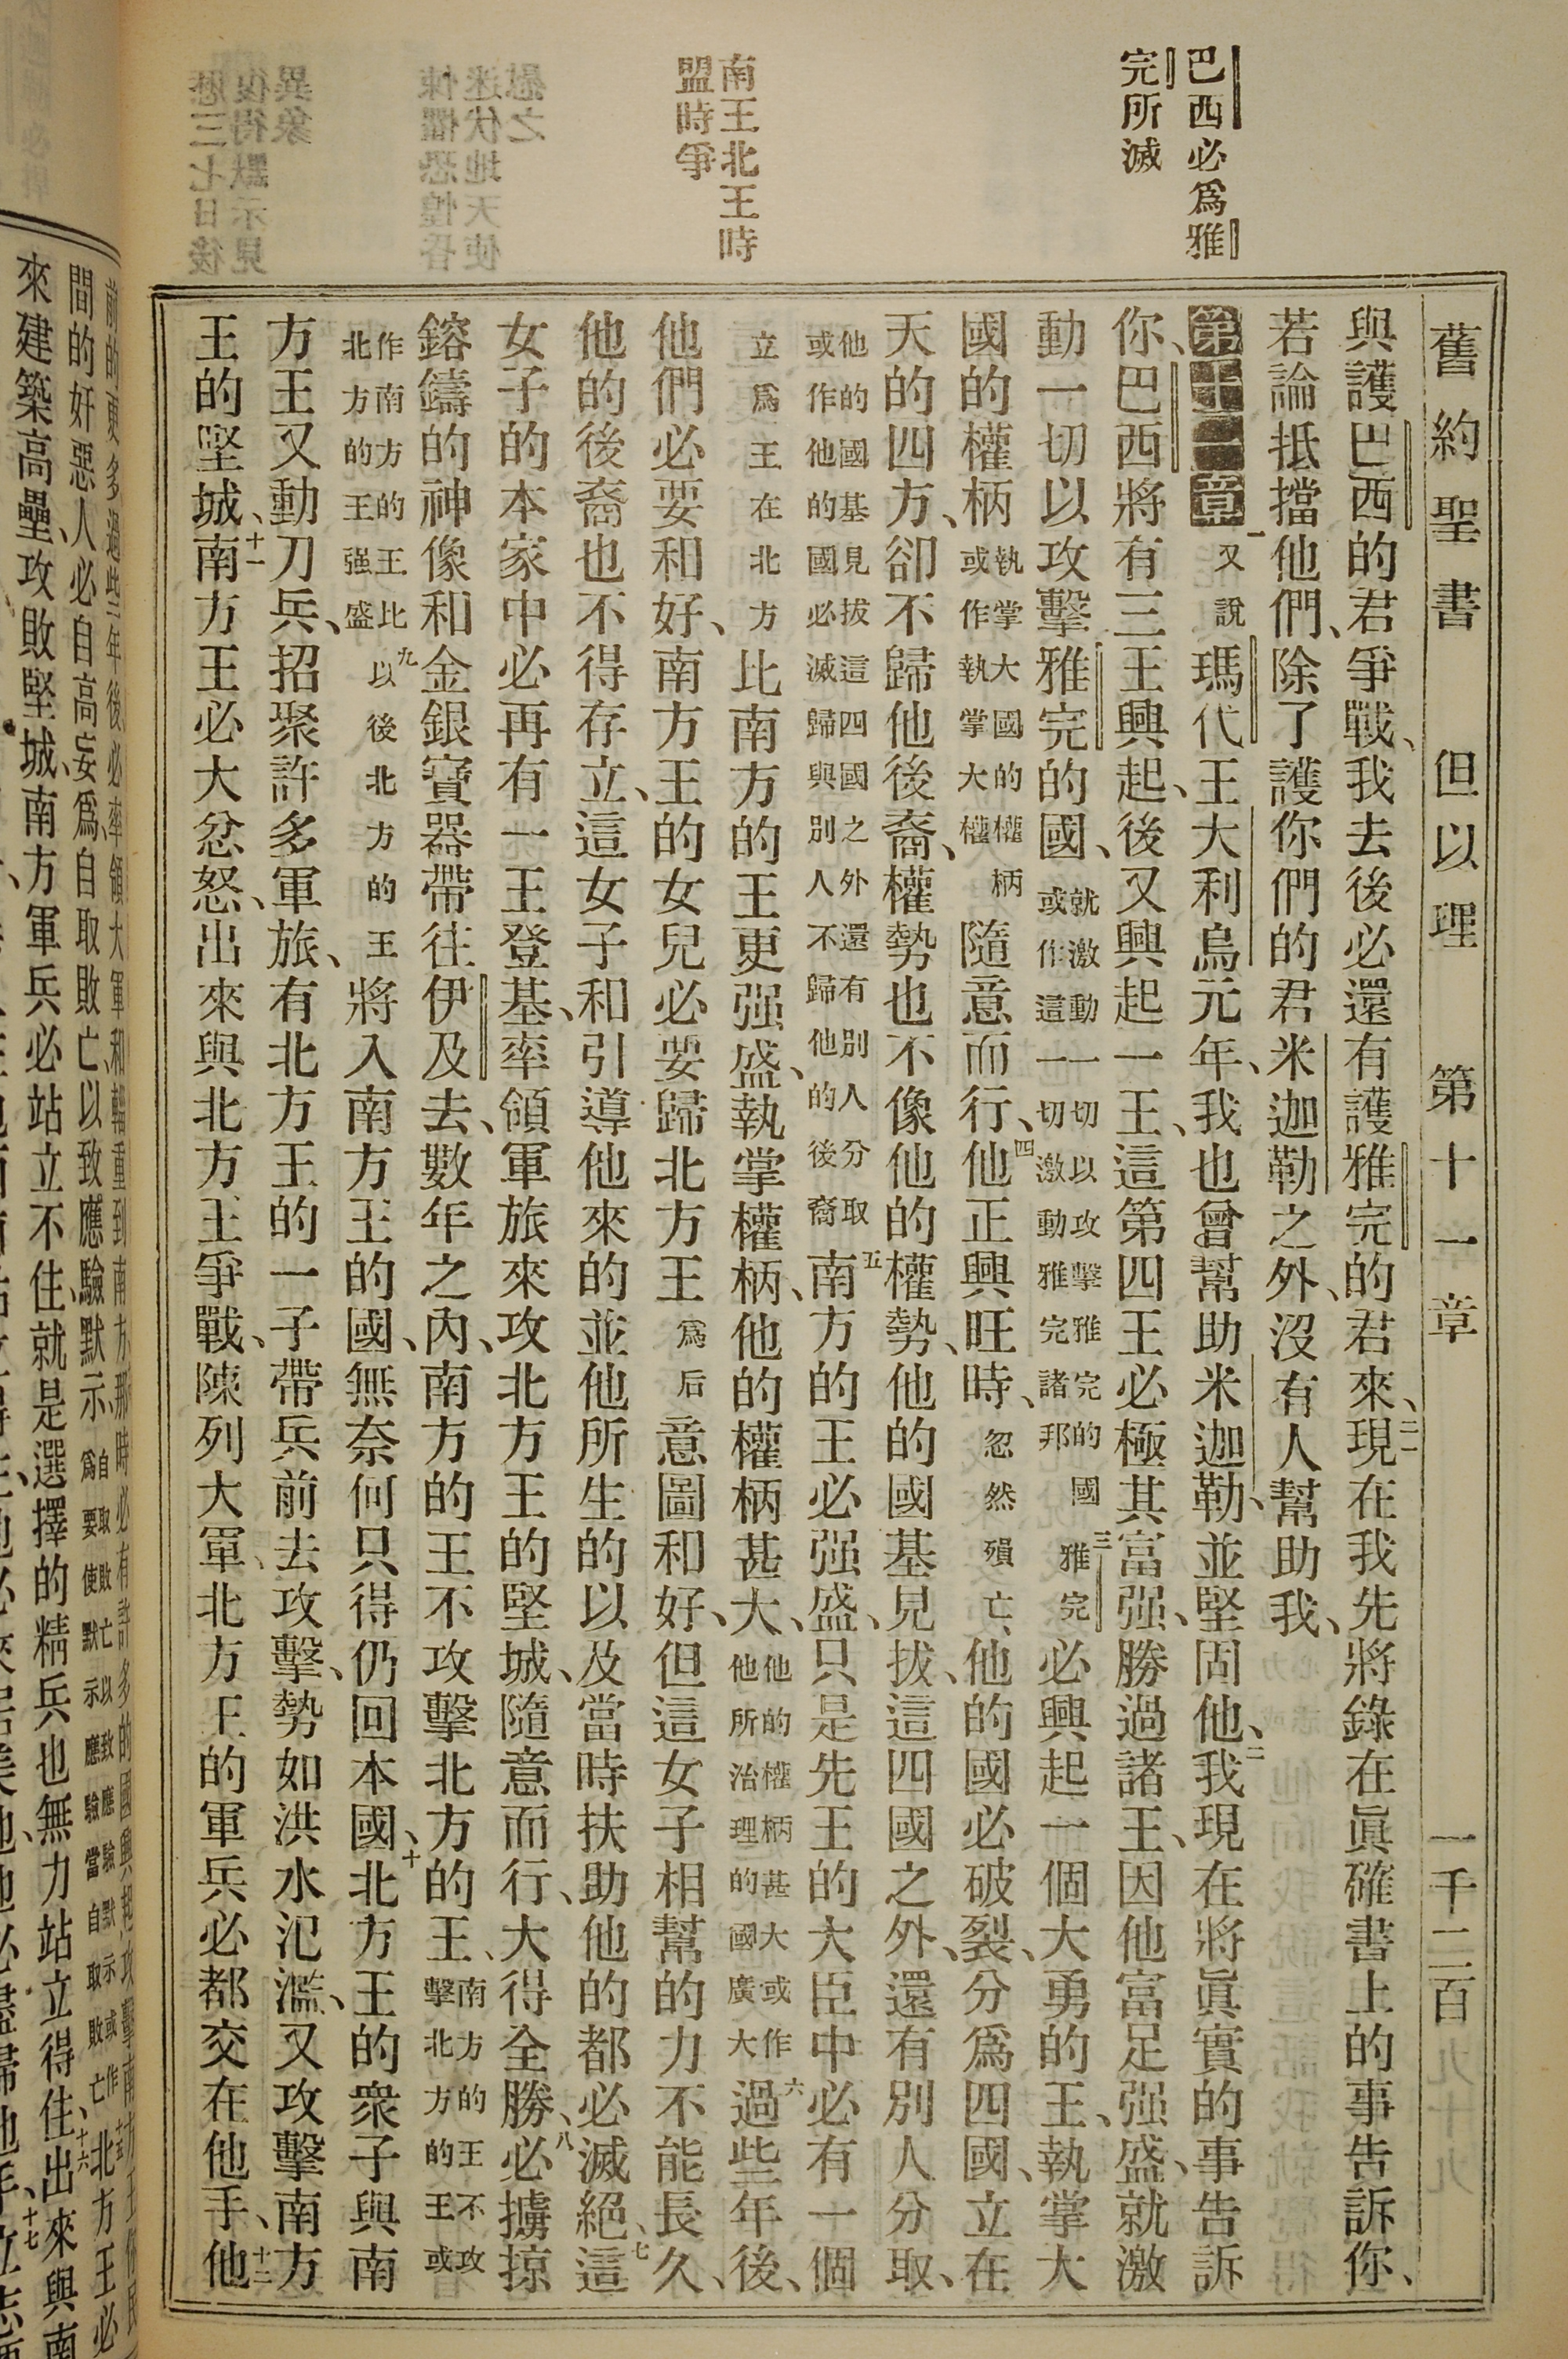 巴西必爲雅
完所滅
南王北王時
盟時爭
舊約聖書 但以理 第十一章 一千二百
與護巴西的君爭戰、我去後必還有護雅完的君來、二一現在我先將錄在眞確書上的事告訴你、
若論抵擋他們、除了護你們的君米迦勒之外、沒有人幫助我、
第十一章一又說瑪代王大利烏元年、我也曾幫助米迦勒、並堅固他、二我現在將眞實的事告訴
你、巴西將有三王興起、後又興起一王、這第四王必極其富强、勝過諸王、因他富足强盛、就激
動一切以攻擊雅完的國、就激動一切以攻擊雅完的國或作這一切激動雅完諸邦三雅完必興起一個大勇的王、執掌大
國的權柄執掌大國的權柄或作執掌大權隨意而行、四他正興旺時、忽然殞亡、他的國必破裂、分爲四國、立在
天的四方、卻不歸他後裔、權勢也不像他的權勢、他的國基見拔、這四國之外、還有別人分取、
他的國基見拔這四國之外還有別人分取或作他的國必滅歸與別人不歸他的後裔五南方的王必强盛、只是先王的大臣中必有一個
立爲王在北方比南方的王更强盛、執掌權柄、他的權柄甚大、他的權柄甚大或作他所治理的國廣大六過些年後、
他們必要和好、南方王的女兒必要歸北方王爲后意圖和好、但這女子相幫的力不能長久、
他的後裔也不得存立、這女子和引導他來的並他所生的以及當時扶助他的都必滅絕、七這
女子的本家中必再有一王登基、率領軍旅來攻北方王的堅城、隨意而行、大得全勝、八必擄掠
鎔鑄的神像和金銀寶器帶往伊及去、數年之內、南方的王不攻擊北方的王、南方的王不攻擊北方的王或
作南方的王比北方的王强盛九以後北方的王將入南方王的國、無奈何只得仍回本國、十北方王的衆子與南
方王又動刀兵、招聚許多軍旅、有北方王的一子帶兵前去攻擊、勢如洪水氾濫、又攻擊南方
王的堅城、十一南方王必大忿怒、出來與北方王爭戰、陳列大軍、北方王的軍兵必都交在他手、十二他
前的更多過些年後必率領大軍和輜重到南方那時必有許多的國興起攻擊南方王
間的奸惡人必自高妄爲、自取敗亡以致應驗默示、自取敗亡以致應驗默示或作爲要使默示應驗當自取敗亡北方王必
來建築高壘、攻敗堅城、南方軍兵必站立不住、就是選擇的精兵也無力站立得住、十六出來與南